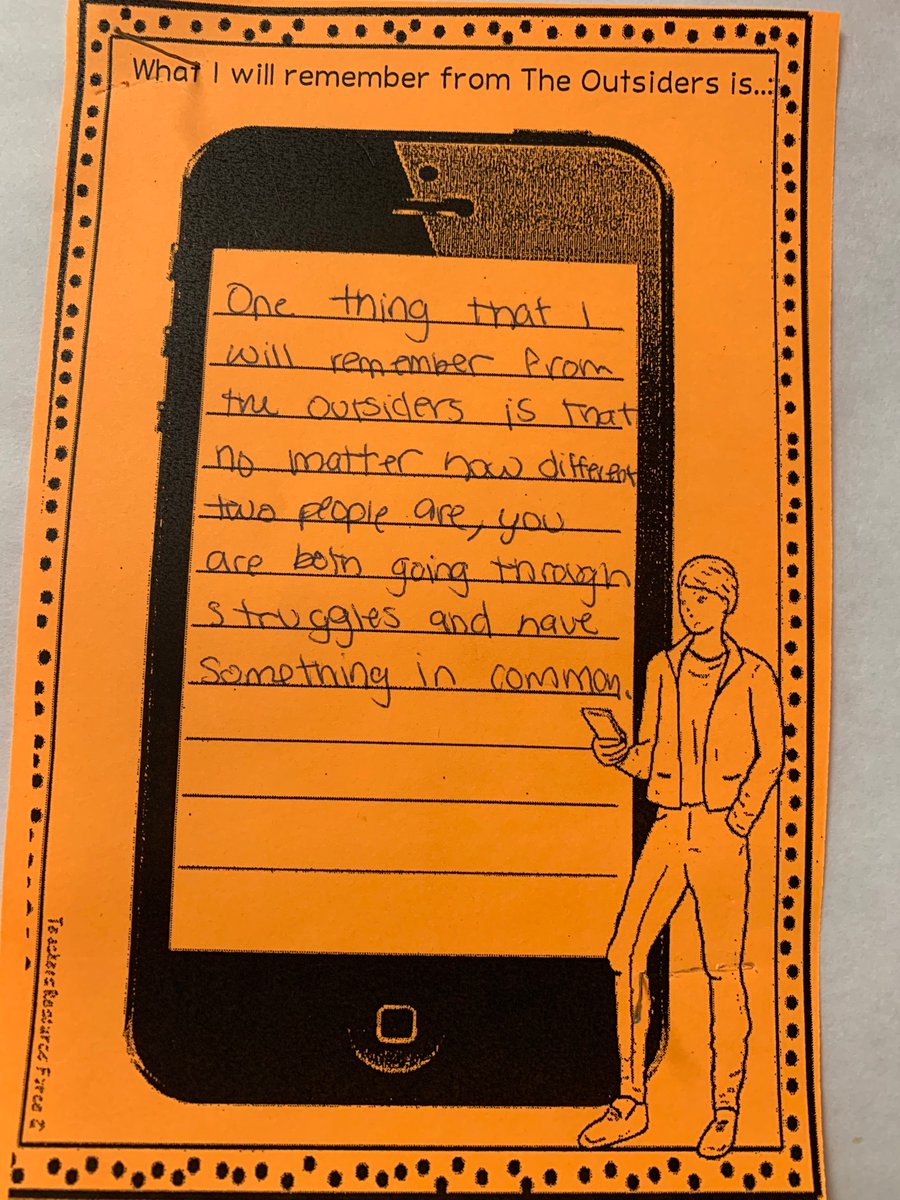 What I will remember from The Outsiders is...
One thing that I
will remember from
the outsiders is that
no matter how different
two people are, you
are both going through
struggles and have
something in common.
Teachers Resource Force 2